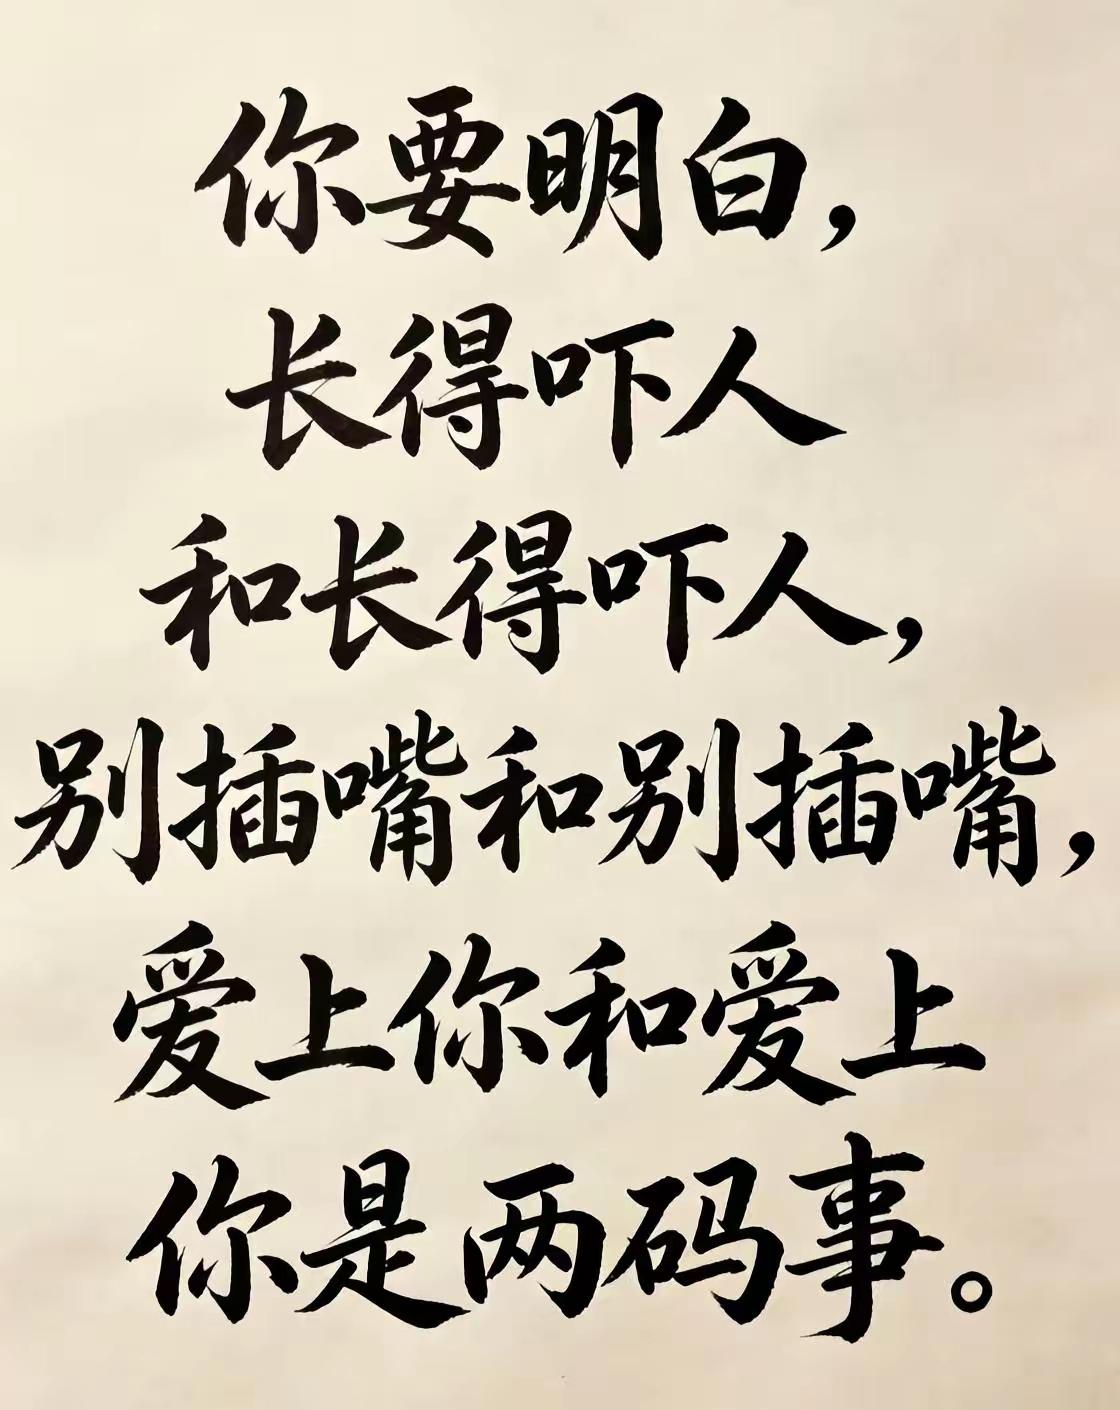 你要明白，
长得吓人
和长得吓人，
别插嘴和别插嘴，
爱上你和爱上
你是两码事。